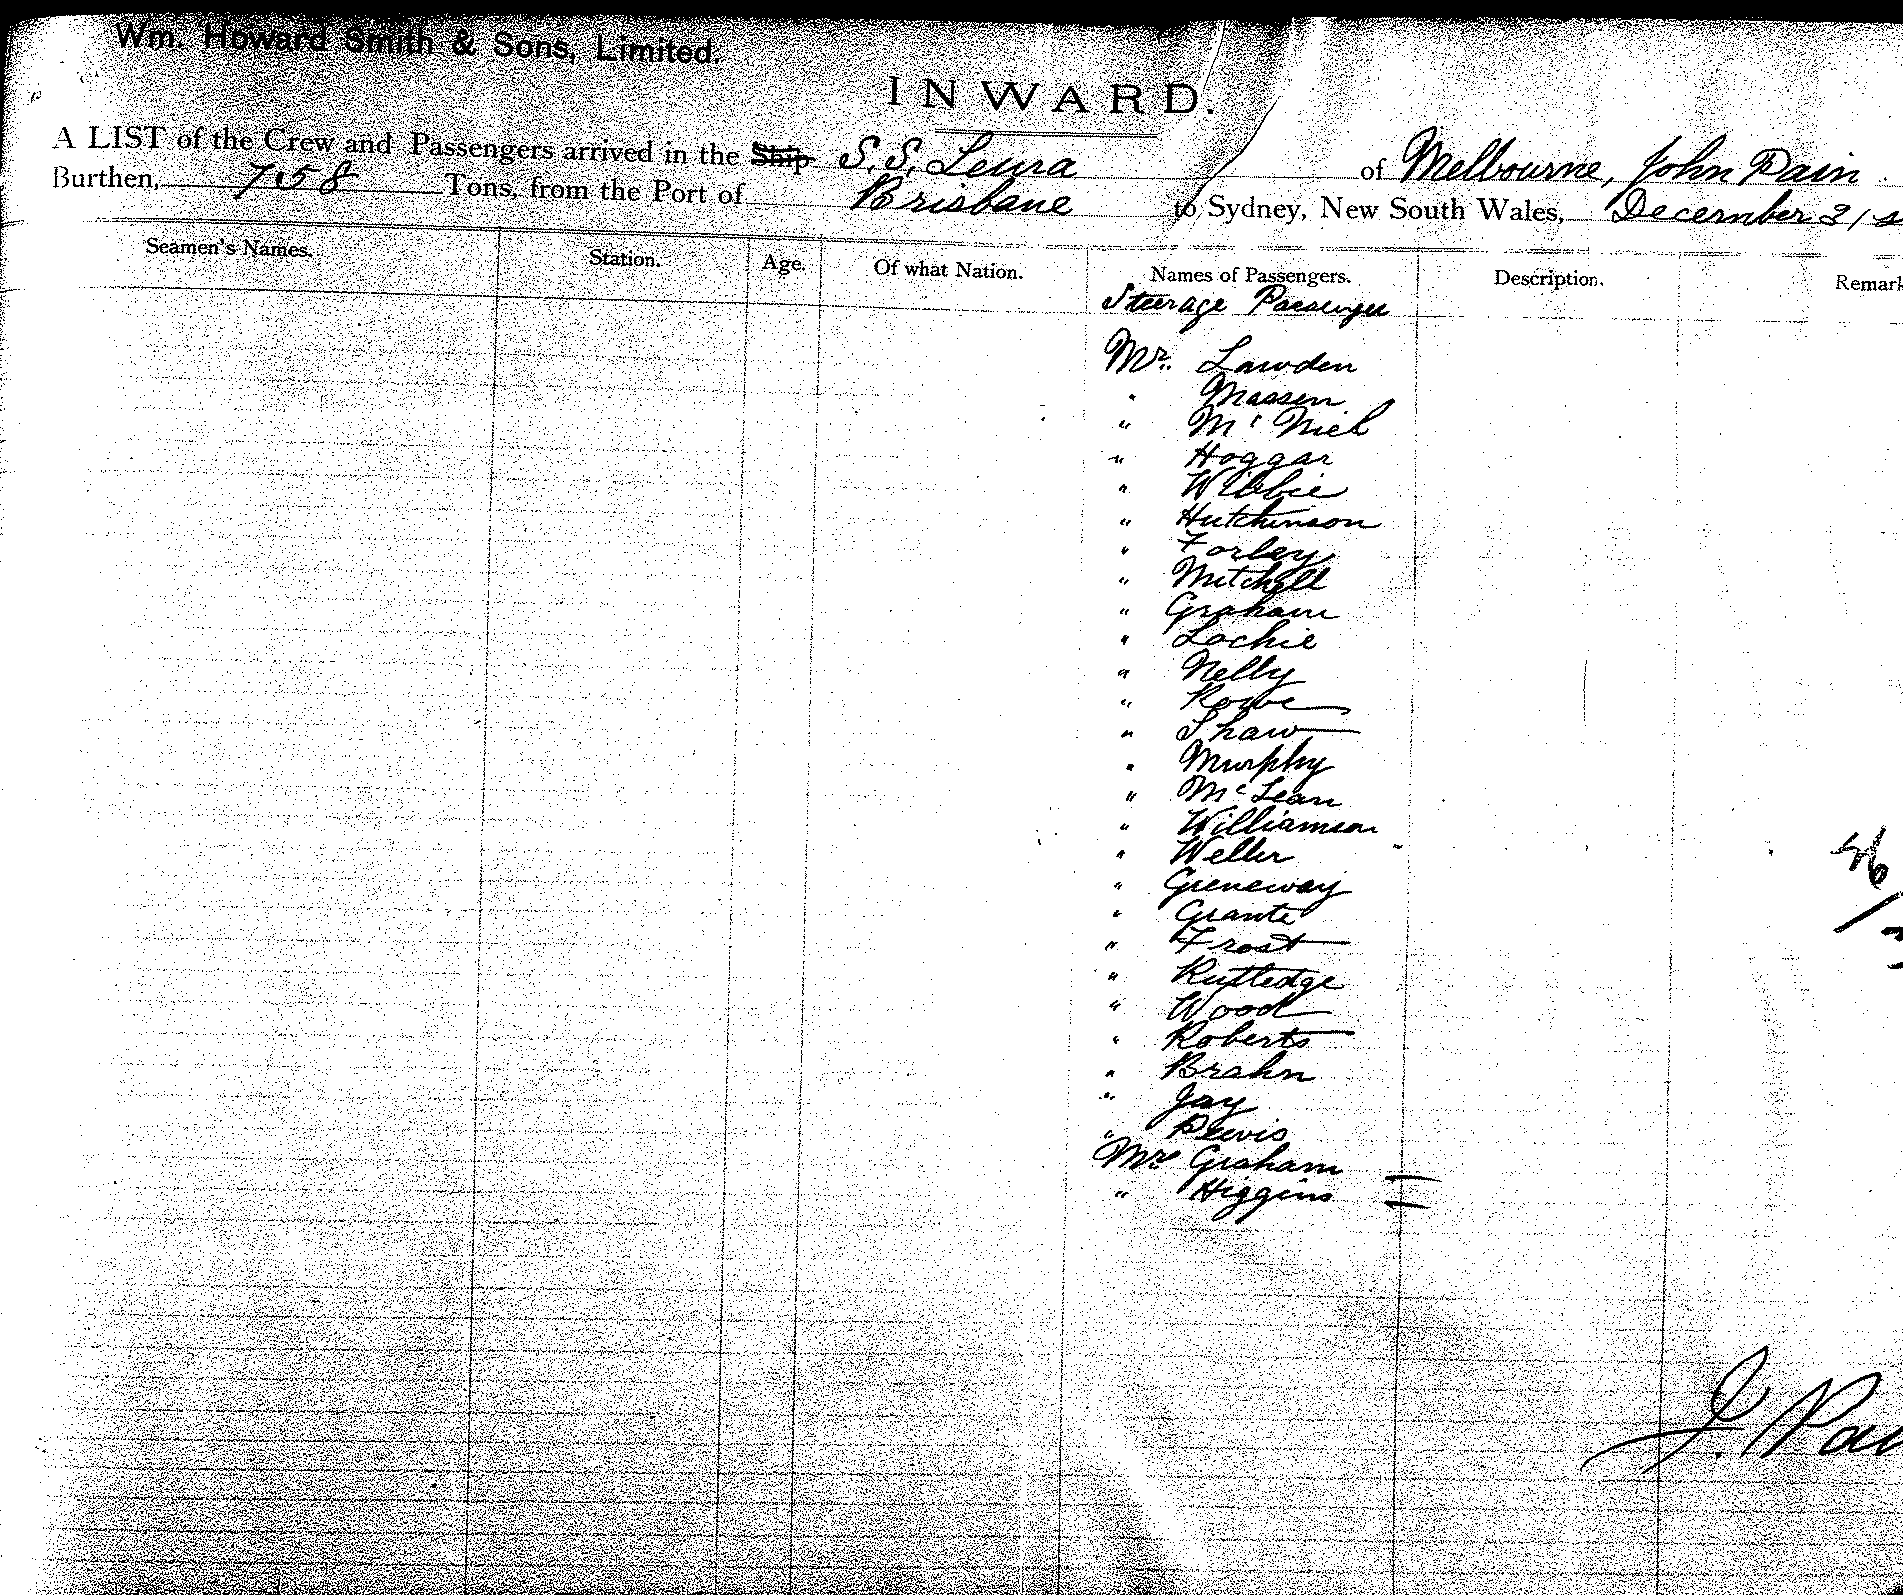 Wm. Howard Smith & Sons, Limited.
INWARD.
A LIST of the Crew and Passengers arrived in the Ship S.S. Leura of Melbourne, John Pain
Burthen, 758 Tons, from the Port of Brisbane to Sydney, New South Wales, December 31s
Seamen's Names. Station. Age. Of what Nation. Names of Passengers. Description. Remark
Steerage Passenger
Mr. Lawden
" Massen
" Mc Niel
" Hoggar
" Wibbie
" Hutchinson
" Forley
" Mitchell
" Graham
" Lochie
" Nelly
" Rowe
" Shaw
" Murphy
" McLean
" Williamson
" Weller
" Greneway
" Grante
" Frost
" Rutledge
" Wood
" Roberts
" Brahn
" Jay
" Bevis
Mrs Graham
" Higgins
J. Pain